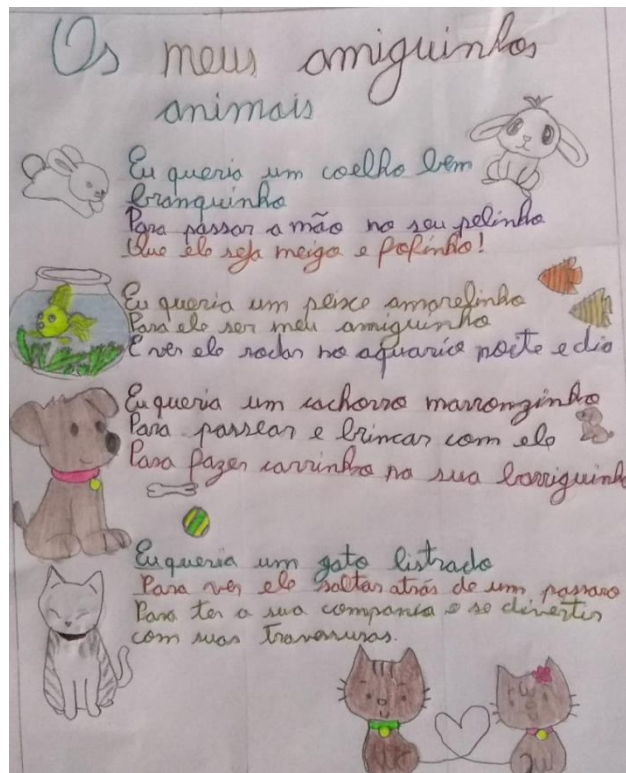 Os meus amiguinhos
animais
Eu queria um coelho bem
branquinho
Para passar a mão no seu pelinho
Que ele seja meigo e fofinho!
Eu queria um peixe amarelinho
Para ele ser meu amiguinho
E ver ele rodar no aquario noite e dia
Eu queria um cachorro marronzinho
Para passear e brincar com ele
Para fazer carrinho na sua barriguinha
Eu queria um gato listrado
Para ver ele saltar atrás de um passaro
Para ter a sua compania e se divertir
com suas travessuras.